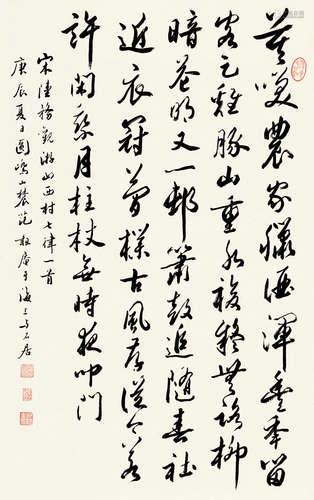 莫笑農家臘酒渾豐年留
客足雞豚山重水複疑無路柳
暗花明又一邨簫鼓追隨春社
近衣冠簡樸古風存從今若
許閑乘月柱杖無時夜叩門
宋陸務觀游山西村七律一首
庚辰夏日圓嶠山農范敬庵于海上